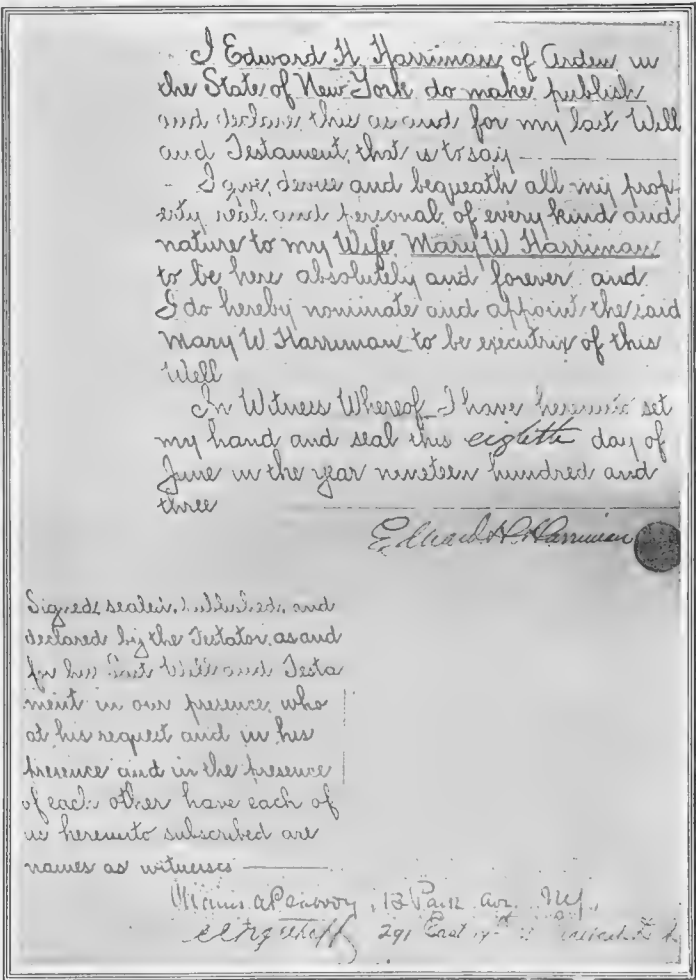 I Edward H. Harriman of Arden in
the State of New York do make publish
and declare this as and for my last Will
and Testament, that is to say
I give, devise and bequeath all my prop-
erty real and personal, of every kind and
nature to my Wife, Mary W Harriman
to be hers absolutely and forever and
I do hereby nominate and appoint the said
Mary W. Harriman to be executrix of this
Will
In Witness Whereof I have hereunto set
my hand and seal this eighth day of
June in the year nineteen hundred and
three
Edward H. Harriman
Signed, sealed, published, and
declared by the Testator, as and
for his Last Will and Testa
ment in our presence, who
at his request and in his
presence and in the presence
of each other have each of
us hereunto subscribed are
names as witnesses
13 Park Av. NY.
291 East